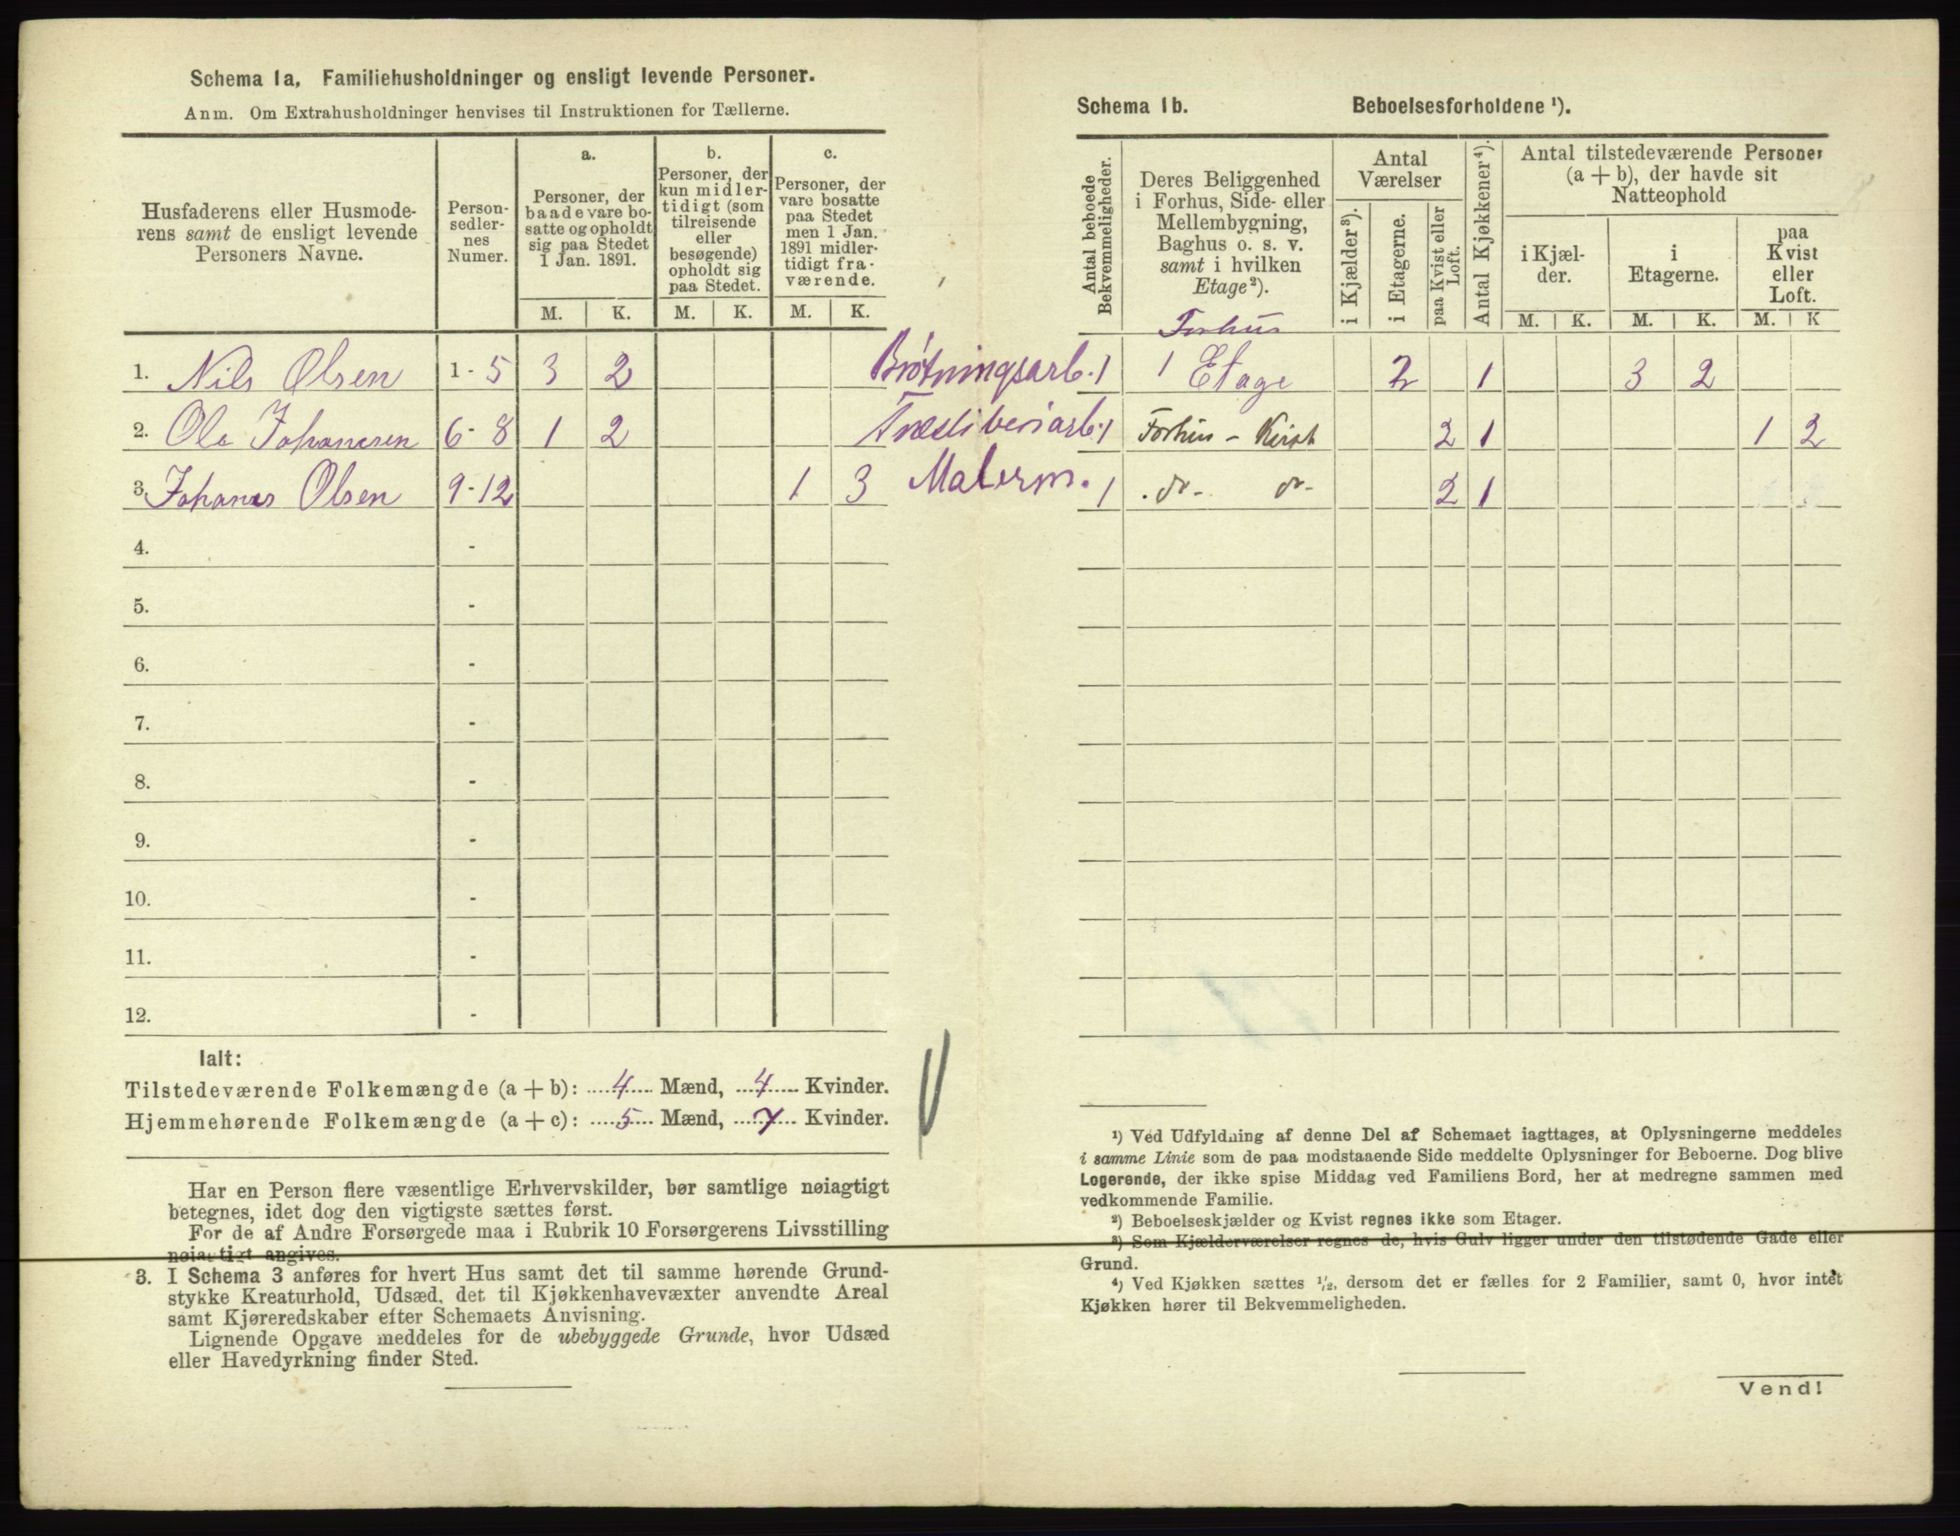 Schema 1a, Familiehusholdninger og ensligt levende Personer.
Anm. Om Extrahusholdninger henvises til Instruktionen for Tællerne.
Husfaderens eller Husmode-
rens samt de ensligt levende
Personers Navne.
Person-
sedler-
nes
Numer.
a.
Personer, der
baade vare bo-
satte og opholdt
sig paa Stedet
1 Jan. 1891.
b.
Personer, der
kun midler-
tidigt (som
tilreisende
eller
besøgende)
opholdt sig
paa Stedet.
c.
Personer, der
vare bosatte
paa Stedet
men 1 Jan.
1891 midler-
tidigt fra-
værende.
M. K. M. K. M. K.
1. Nils Olsen 1 - 5 3 2 Brøtningsarb.
2. Ole Johannesen 6 - 8 1 2 Træsliberiarb.
3. Johanes Olsen 9 - 12 1 3 Malerm.
4. -
5. -
6. -
7. -
8. -
9. -
10. -
11. -
12. -
Ialt:
Tilstedeværende Folkemængde (a + b): 4 Mænd, 4 Kvinder.
Hjemmehørende Folkemængde (a + c): 5 Mænd, 7 Kvinder.
Har en Person flere væsentlige Erhvervskilder, bør samtlige nøiagtigt
betegnes, idet dog den vigtigste sættes først.
For de af Andre Forsørgede maa i Rubrik 10 Forsørgerens Livsstilling
nøiagtigt angives.
3. I Schema 3 anføres for hvert Hus samt det til samme hørende Grund-
stykke Kreaturhold, Udsæd, det til Kjøkkenhavevæxter anvendte Areal
samt Kjøreredskaber efter Schemaets Anvisning.
Lignende Opgave meddeles for de ubebyggede Grunde, hvor Udsæd
eller Havedyrkning finder Sted.
Schema 1b. Beboelsesforholdene ¹).
Antal beboede
Bekvemmeligheder.
Deres Beliggenhed
i Forhus, Side- eller
Mellembygning,
Baghus o. s. v.
samt i hvilken
Etage²).
Antal
Værelser
i Kjælder³).
i Etagerne.
paa Kvist eller
Loft.
Antal Kjøkkener⁴).
Antal tilstedeværende Personer
(a + b), der havde sit
Natteophold
i Kjæl-
der.
i
Etagerne.
paa
Kvist
eller
Loft.
M. K. M. K. M. K
Forhus
1 1 Etage 2 1 3 2
1 Forhus - Kvist 2 1 1 2
1 do- do- 2 1
¹) Ved Udfyldning af denne Del af Schemaet iagttages, at Oplysningerne meddeles
i samme Linie som de paa modstaaende Side meddelte Oplysninger for Beboerne. Dog blive
Logerende, der ikke spise Middag ved Familiens Bord, her at medregne sammen med
vedkommende Familie.
²) Beboelseskjælder og Kvist regnes ikke som Etager.
³) Som Kjælderværelser regnes de, hvis Gulv ligger under den tilstødende Gade eller
Grund.
⁴) Ved Kjøkken sættes ¹/₂, dersom det er fælles for 2 Familier, samt 0, hvor intet
Kjøkken hører til Bekvemmeligheden.
Vend!